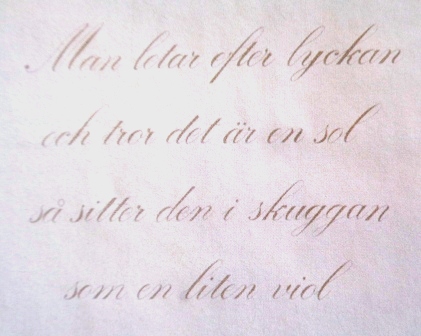 Man letar efter lyckan
och tror det är en sol
så sitter den i skuggan
som en liten viol